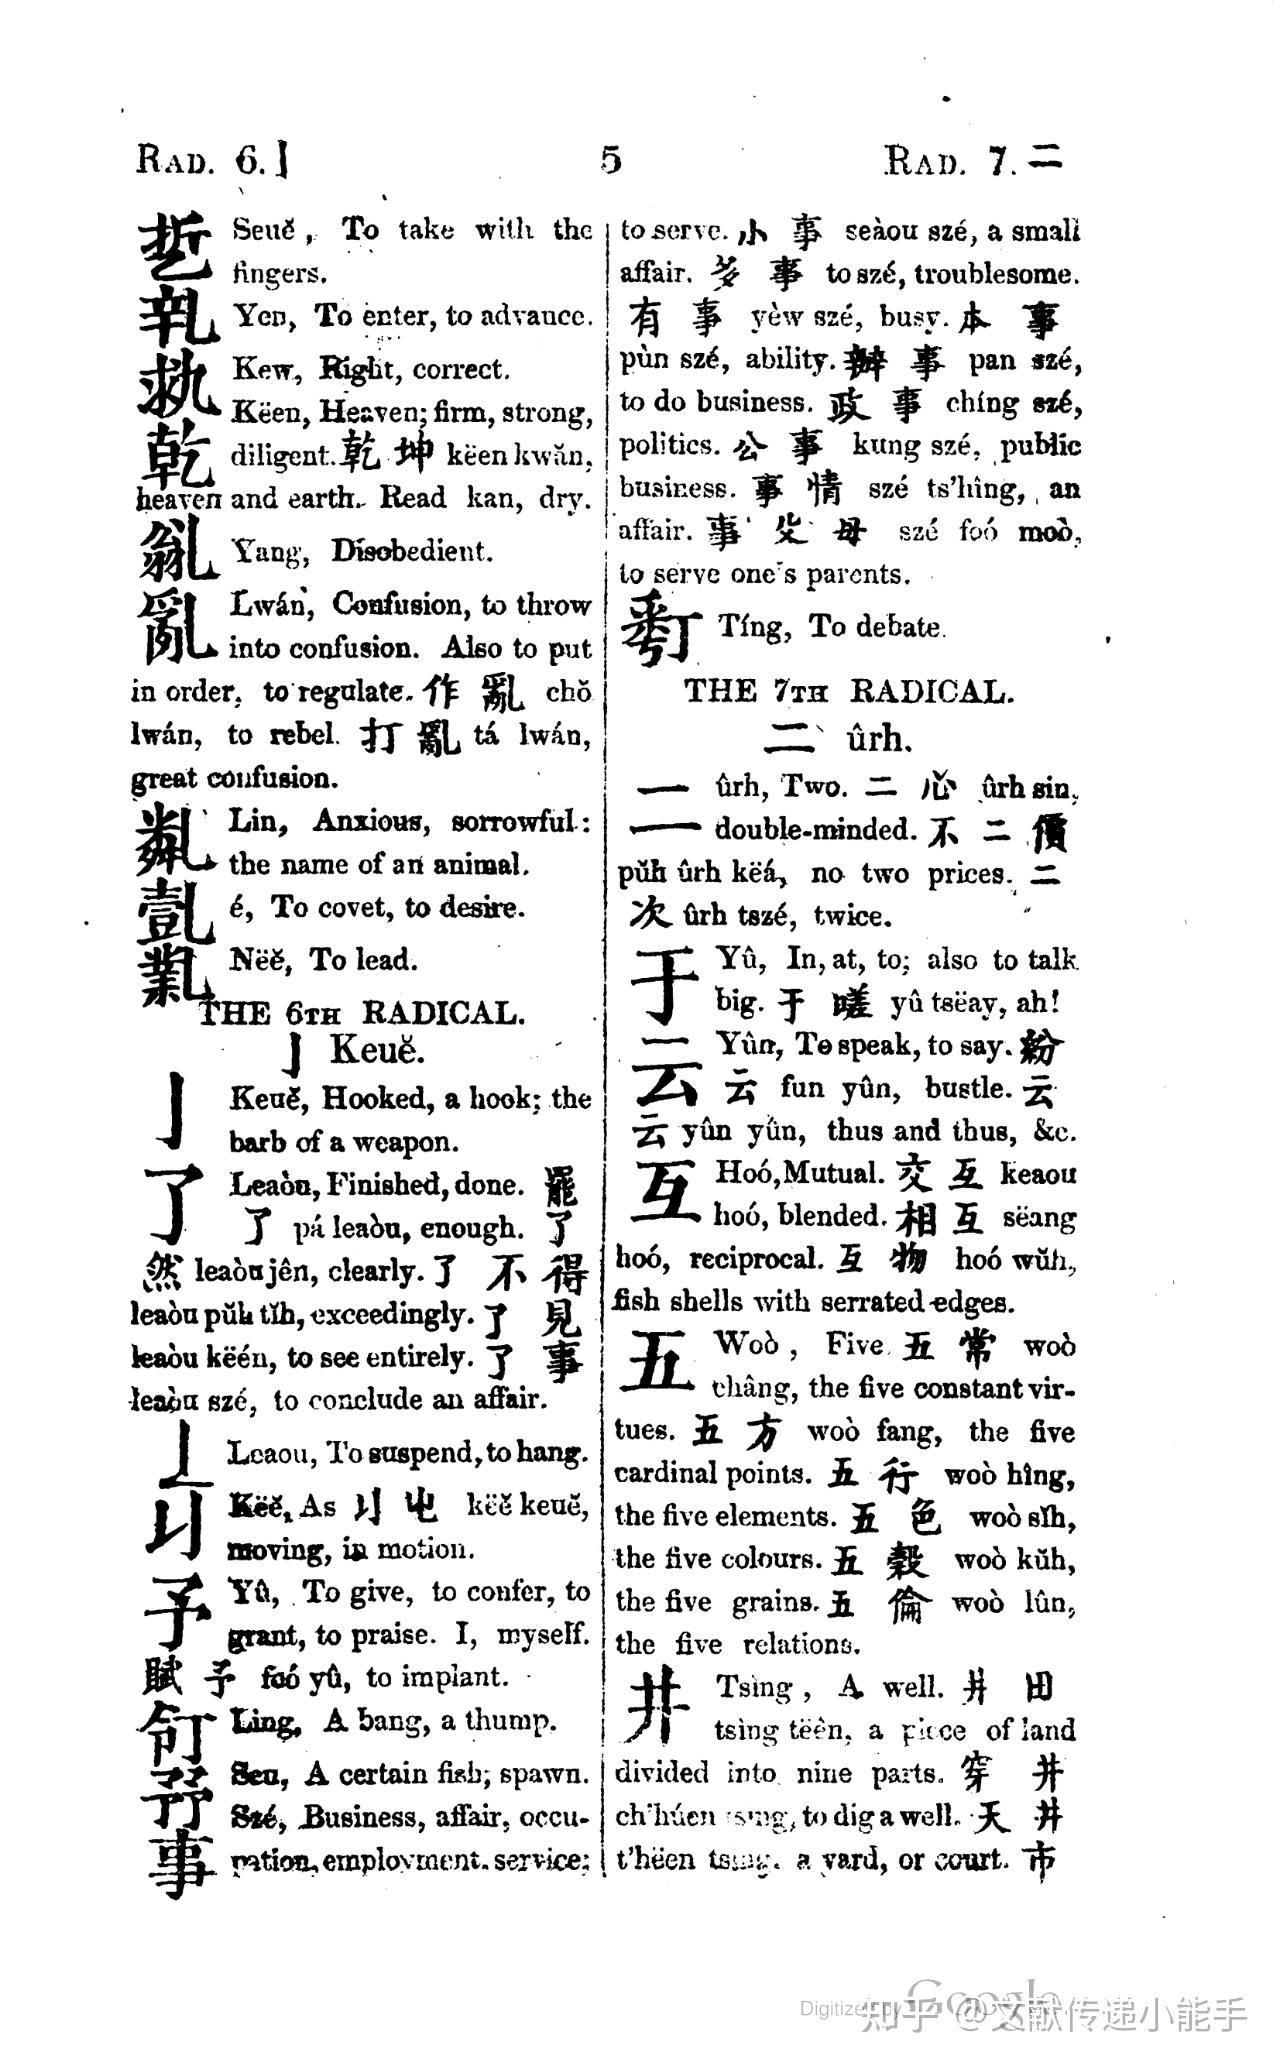 RAD. 6. 亅
5
RAD. 7. 二
Seuĕ, To take with the
fingers.
Yen, To enter, to advance.
Kew, Right, correct.
乾 Këen, Heaven; firm, strong,
diligent. 乾 坤 këen kwăn,
heaven and earth. Read kan, dry.
Yang, Disobedient.
亂 Lwán, Confusion, to throw
into confusion. Also to put
in order, to regulate. 作 亂 chŏ
lwán, to rebel. 打 亂 tá lwán,
great confusion.
Lin, Anxious, sorrowful:
the name of an animal.
é, To covet, to desire.
Nëĕ, To lead.
THE 6TH RADICAL.
亅 Keuĕ.
亅 Keuĕ, Hooked, a hook; the
barb of a weapon.
了 Leaòu, Finished, done. 罷
了 pá leaòu, enough. 了
然 leaòu jên, clearly. 了 不 得
leaòu pŭh tĭh, exceedingly. 了 見
leaòu këén, to see entirely. 了 事
leaòu szé, to conclude an affair.
Leaou, To suspend, to hang.
Këĕ, As këĕ keuĕ,
moving, in motion.
予 Yû, To give, to confer, to
grant, to praise. I, myself.
賦 予 foó yû, to implant.
Ling, A bang, a thump.
Seu, A certain fish; spawn.
事 Szé, Business, affair, occu-
pation, employment. service;
to serve. 小 事 seàou szé, a small
affair. 多 事 to szé, troublesome.
有 事 yèw szé, busy. 本 事
pùn szé, ability. 辦 事 pan szé,
to do business. 政 事 chíng szé,
politics. 公 事 kung szé, public
business. 事 情 szé ts'hîng, an
affair. 事 父 母 szé foó moò,
to serve one's parents.
Tíng, To debate.
THE 7TH RADICAL.
二 ûrh.
二 ûrh, Two. 二 心 ûrh sin,
double-minded. 不 二 價
pŭh ûrh këá, no two prices. 二
次 ûrh tszé, twice.
于 Yû, In, at, to; also to talk
big. 于 嗟 yû tsëay, ah!
云 Yûn, To speak, to say. 紛
云 fun yûn, bustle. 云
云 yûn yûn, thus and thus, &c.
互 Hoó, Mutual. 交 互 keaou
hoó, blended. 相 互 sëang
hoó, reciprocal. 互 物 hoó wŭh,
fish shells with serrated edges.
五 Woò, Five. 五 常 woò
châng, the five constant vir-
tues. 五 方 woò fang, the five
cardinal points. 五 行 woò hîng,
the five elements. 五 色 woò sĭh,
the five colours. 五 穀 woò kŭh,
the five grains. 五 倫 woò lûn,
the five relations.
井 Tsìng, A well. 井 田
tsìng tëên, a piece of land
divided into nine parts. 穿 井
ch'húen tsìng, to dig a well. 天 井
t'hëen tsìng, a yard, or court. 市
Digitized by Google
知乎 @文献传递小能手